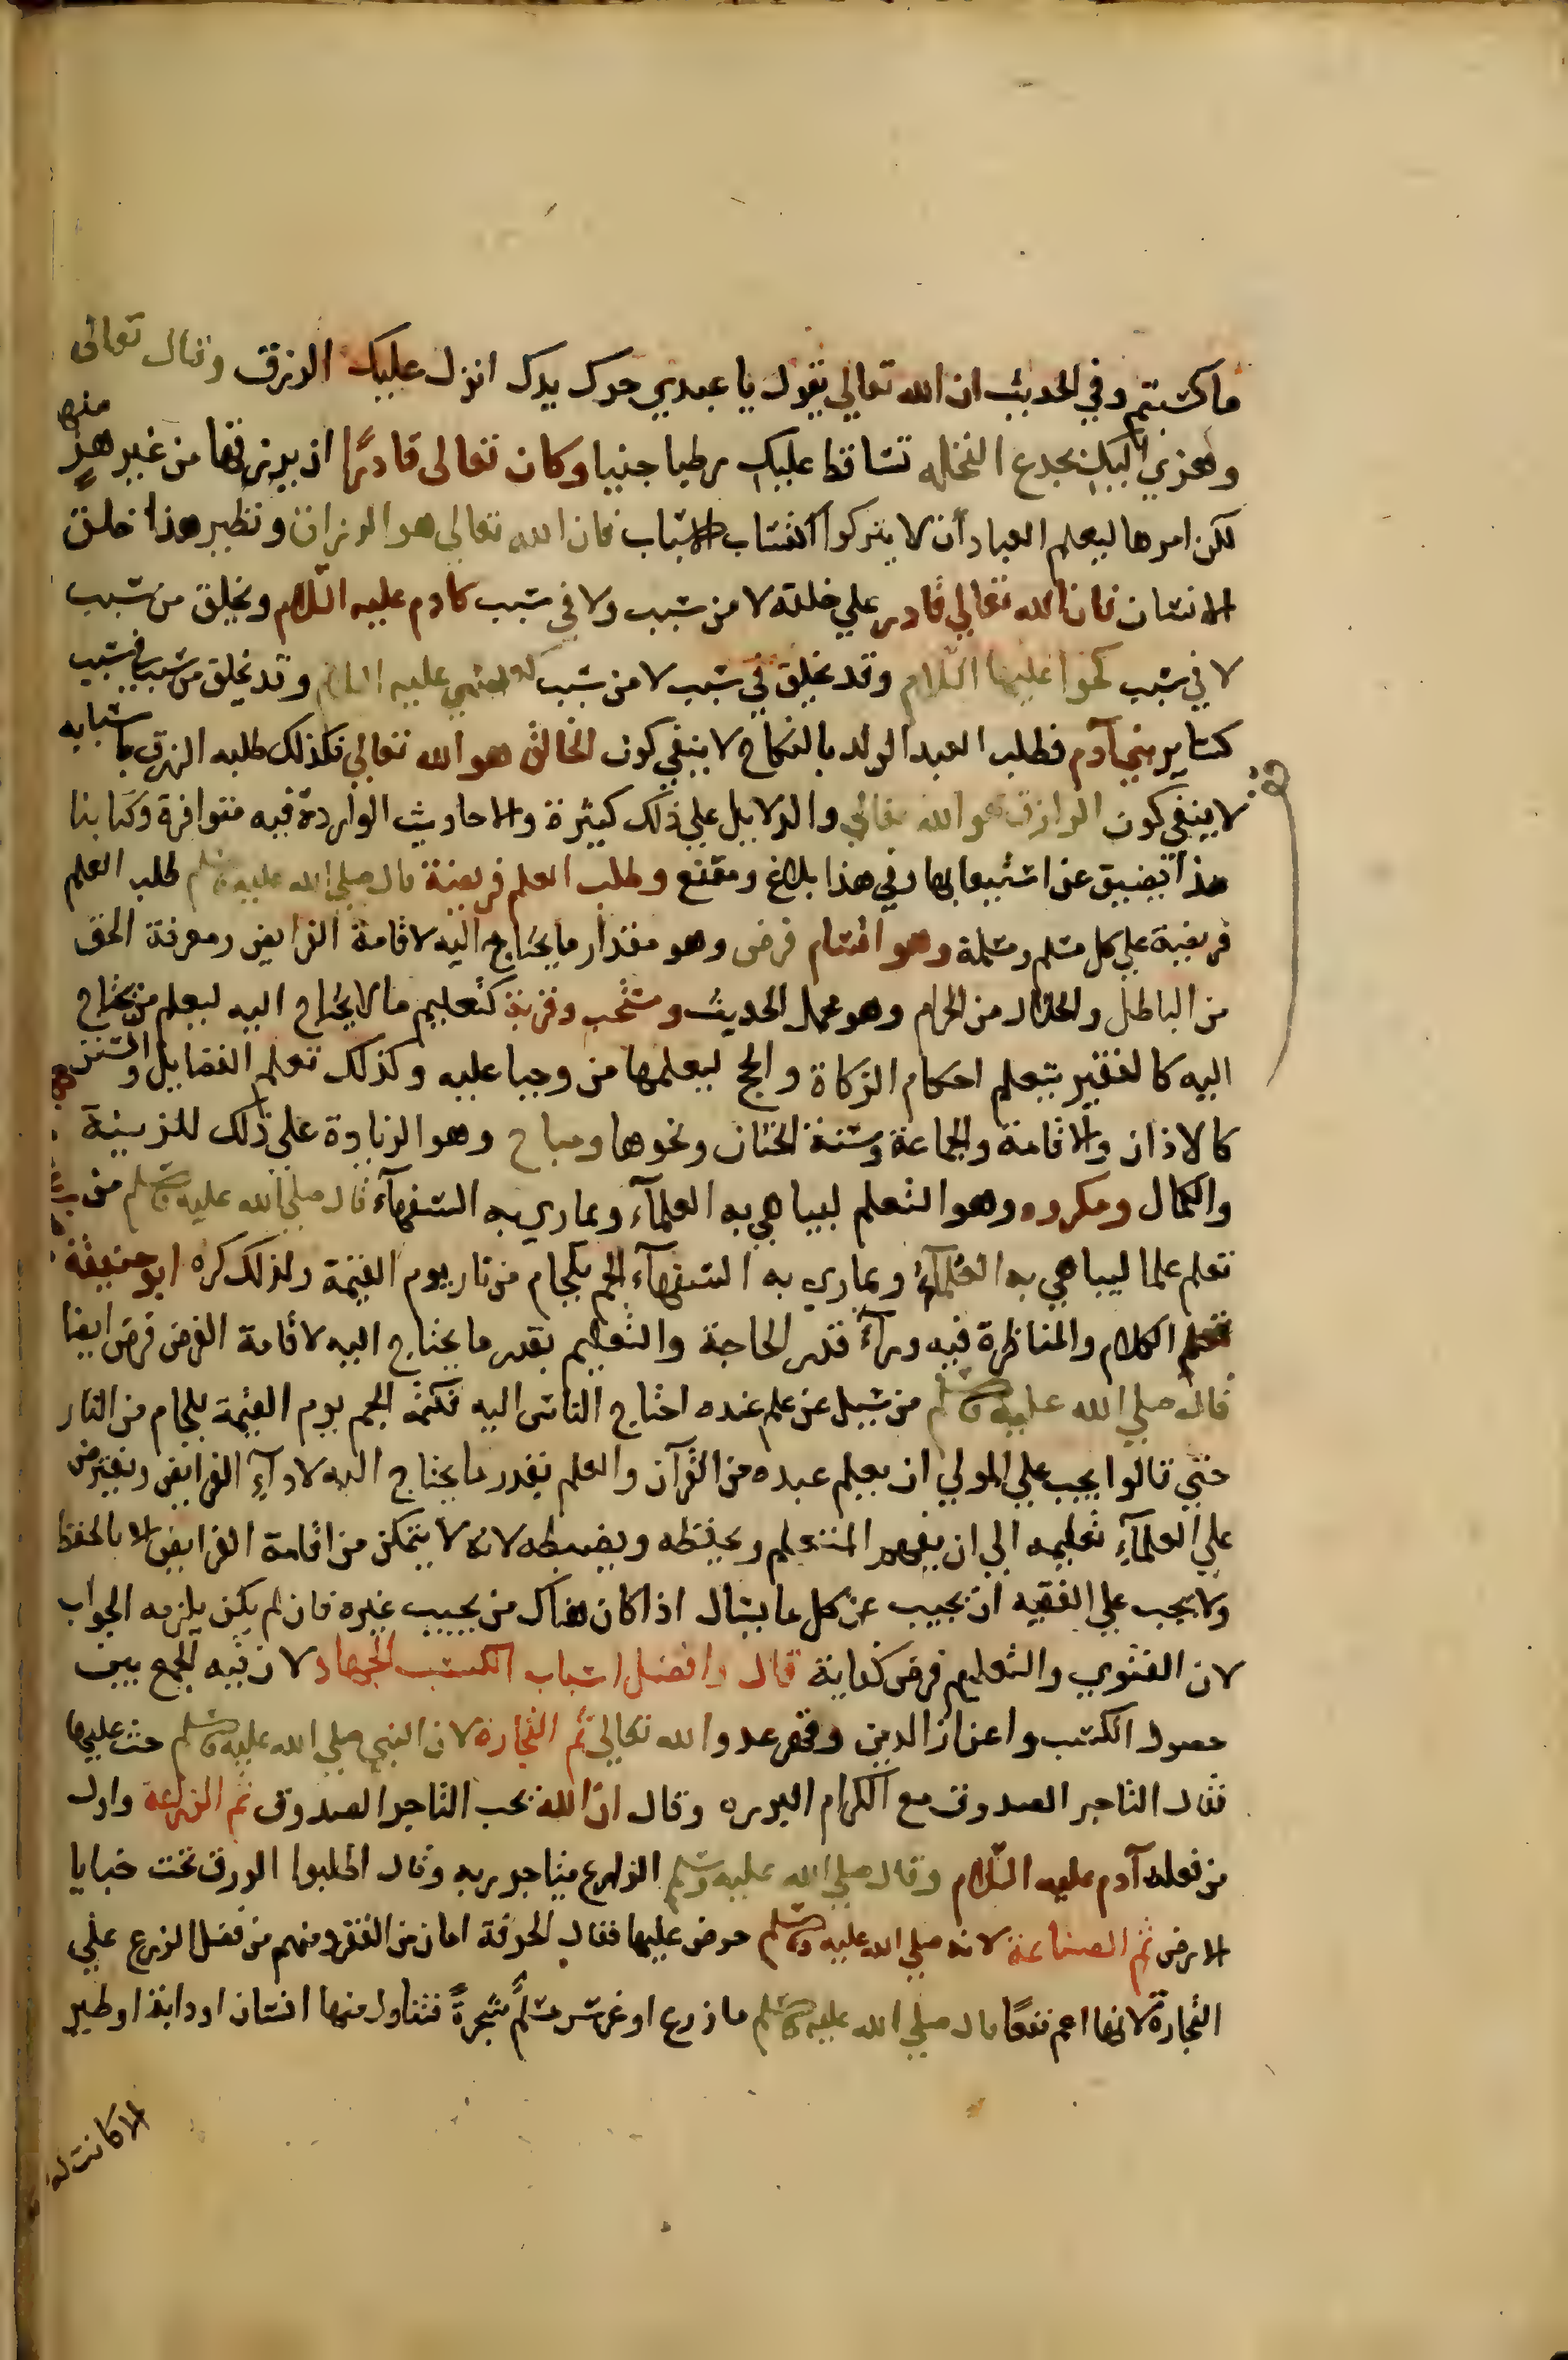 ما كسبتم وفي الحديث ان الله تعالي يقول يا عبدي حرك يدك انزل عليك الرزق وقال تعالى
وهزي اليك بجدع النخله تساقط عليك رطبا جنيا وكان تعالى قادرًا ان يرزقها من غير هزٍ منها
لكن امرها ليعلم العباد أن لا يتركوا اكتساب الاسباب فان الله تعالي هو الرزاق ونظير هذا خلق
الانسان فان الله تعالي قادر علي خلقه لا من سبب ولا في سبب كادم عليه السّلام ويخلق من سبب
لا في سبب كحوا عليها السّلام وقد يخلق في سبب لا من سبب كعيسي عليه السلام وقد يخلق من سبب في سبب
كساير بني آدم فطلب العبد الولد بالنكاح لا ينفي كون الخالق هو الله تعالي فكذلك طلبه الرزق باسبابه
لا ينفي كون الرازق هو الله تعالي والدلايل علي ذلك كيثرة والاحاديث الواردة فيه متوافرة وكتابنا
هذا يضيق عن استيعابها وفي هذا بلاغ ومقنع وطلب العلم فريضة قال صلي الله عليه وسلم طلب العلم
فريضة علي كل مسلم ومسلمة وهو اقسام فرض وهو مقدار ما يحتاج اليه لاقامة الفرايض ومعرفة الحق
من الباطل والحلال من الحرام وهو محمل الحديث ومستحب وقربة كتعليم ما لا يحتاج اليه ليعلم من يحتاج
اليه كالفقير يتعلم احكام الزكاة والحج ليعلمها من وجبا عليه وكذلك تعلم الفضايل والسنن
كالاذان والاقامة والجماعة وسنة الختان ونحوها ومباح وهو الزيادة علي ذلك للزينة
والكمال ومكروه وهو التعلم ليباهي به العلمآء ويماري به السفهآء قال صلي الله عليه وسلم من
تعلم علما ليباهي به العلمآء ويماري به السفهآء الجم بلجام من نار يوم القيمة ولذلك كره ابو حنيفة
تعلم الكلام والمناظرة فيه ورآء قدر الحاجة والتعليم بقدر ما يحتاج اليه لاقامة الفرض فرض ايضا
قال صلي الله عليه وسلم من سيل عن علم عنده احتاج الناس اليه فكتمه الجم يوم القيمة بلجام من النار
حتي قالوا يجب علي المولي ان يعلم عبده من القرآن والعلم بقدر ما يحتاج اليه لادآءِ الفرايض ويفترض
علي العلمآءِ تعليمه الي ان يفهم المتعلم ويحفظه ويضبطه لانه لا يتمكن من اقامة الفرايض الا بالحفظ
ولا يجب علي الفقيه ان يجيب عن كل ما يسال اذا كان هناك من يجيب غيره فان لم يكن يلزمه الجواب
لان الفتوي والتعليم فرض كفاية قال وافضل اسباب الكسب الجهاد لان فيه الجمع بين
حصول الكسب واعزاز الدين وقهر عدو الله تعالي ثم التجارة لان النبي صلي الله عليه وسلم حث عليها
فقال التاجر الصدوق مع الكرام البرره وقال انّ الله يحب التاجر الصدوق ثم الزراعة واول
من فعله آدم عليه السّلام وقال صلي الله عليه وسلم الزارع يتاجر ربه وقال اطلبوا الرزق تحت خبايا
الارض ثم الصناعة لانه صلي الله عليه وسلم حرض عليها فقال الحرفة امان من الفقر ومنهم من فضل الزرع علي
التجارة لانها اعم نفعًا قال صلي الله عليه وسلم ما زرع او غرس مسلمٌ شجرةً فتناول منها انسان او دابة او طير
الا كانت له